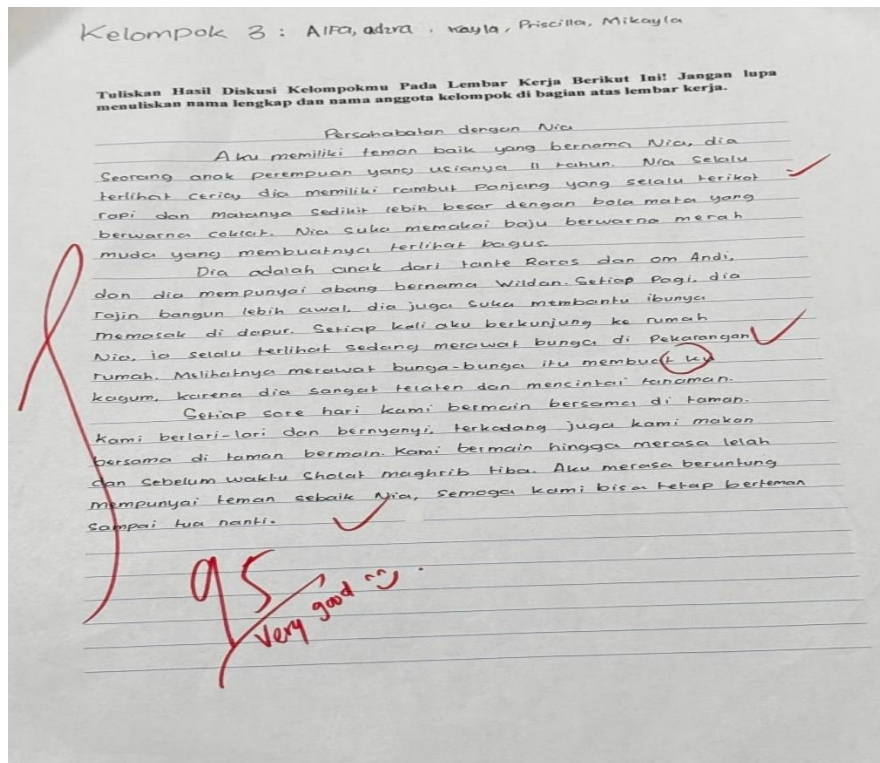 Kelompok 3 : Alfa, adzra, Kayla, Priscilla, Mikayla
Tuliskan Hasil Diskusi Kelompokmu Pada Lembar Kerja Berikut Ini! Jangan lupa
menuliskan nama lengkap dan nama anggota kelompok di bagian atas lembar kerja.
Persahabatan dengan Nia
Aku memiliki teman baik yang bernama Nia, dia
Seorang anak perempuan yang usianya 11 tahun. Nia Selalu
terlihat ceria, dia memiliki rambut Panjang yang selalu terikat
rapi dan matanya sedikit lebih besar dengan bola mata yang
berwarna coklat. Nia suka memakai baju berwarna merah
muda yang membuatnya terlihat bagus.
Dia adalah anak dari tante Raras dan om Andi,
dan dia mempunyai abang bernama Wildan. Setiap Pagi, dia
rajin bangun lebih awal, dia juga suka membantu ibunya
memasak di dapur. Setiap kali aku berkunjung ke rumah
Nia, ia selalu terlihat sedang merawat bunga di Pekarangan
rumah. Melihatnya merawat bunga-bunga itu membuat ku
kagum, karena dia sangat telaten dan mencintai tanaman.
Setiap sore hari kami bermain bersama di taman.
Kami berlari-lari dan bernyanyi, terkadang juga kami makan
bersama di taman bermain. Kami bermain hingga merasa lelah
dan sebelum waktu Sholat maghrib tiba. Aku merasa beruntung
mempunyai teman sebaik Nia, semoga kami bisa tetap berteman
sampai tua nanti.
95
Very good